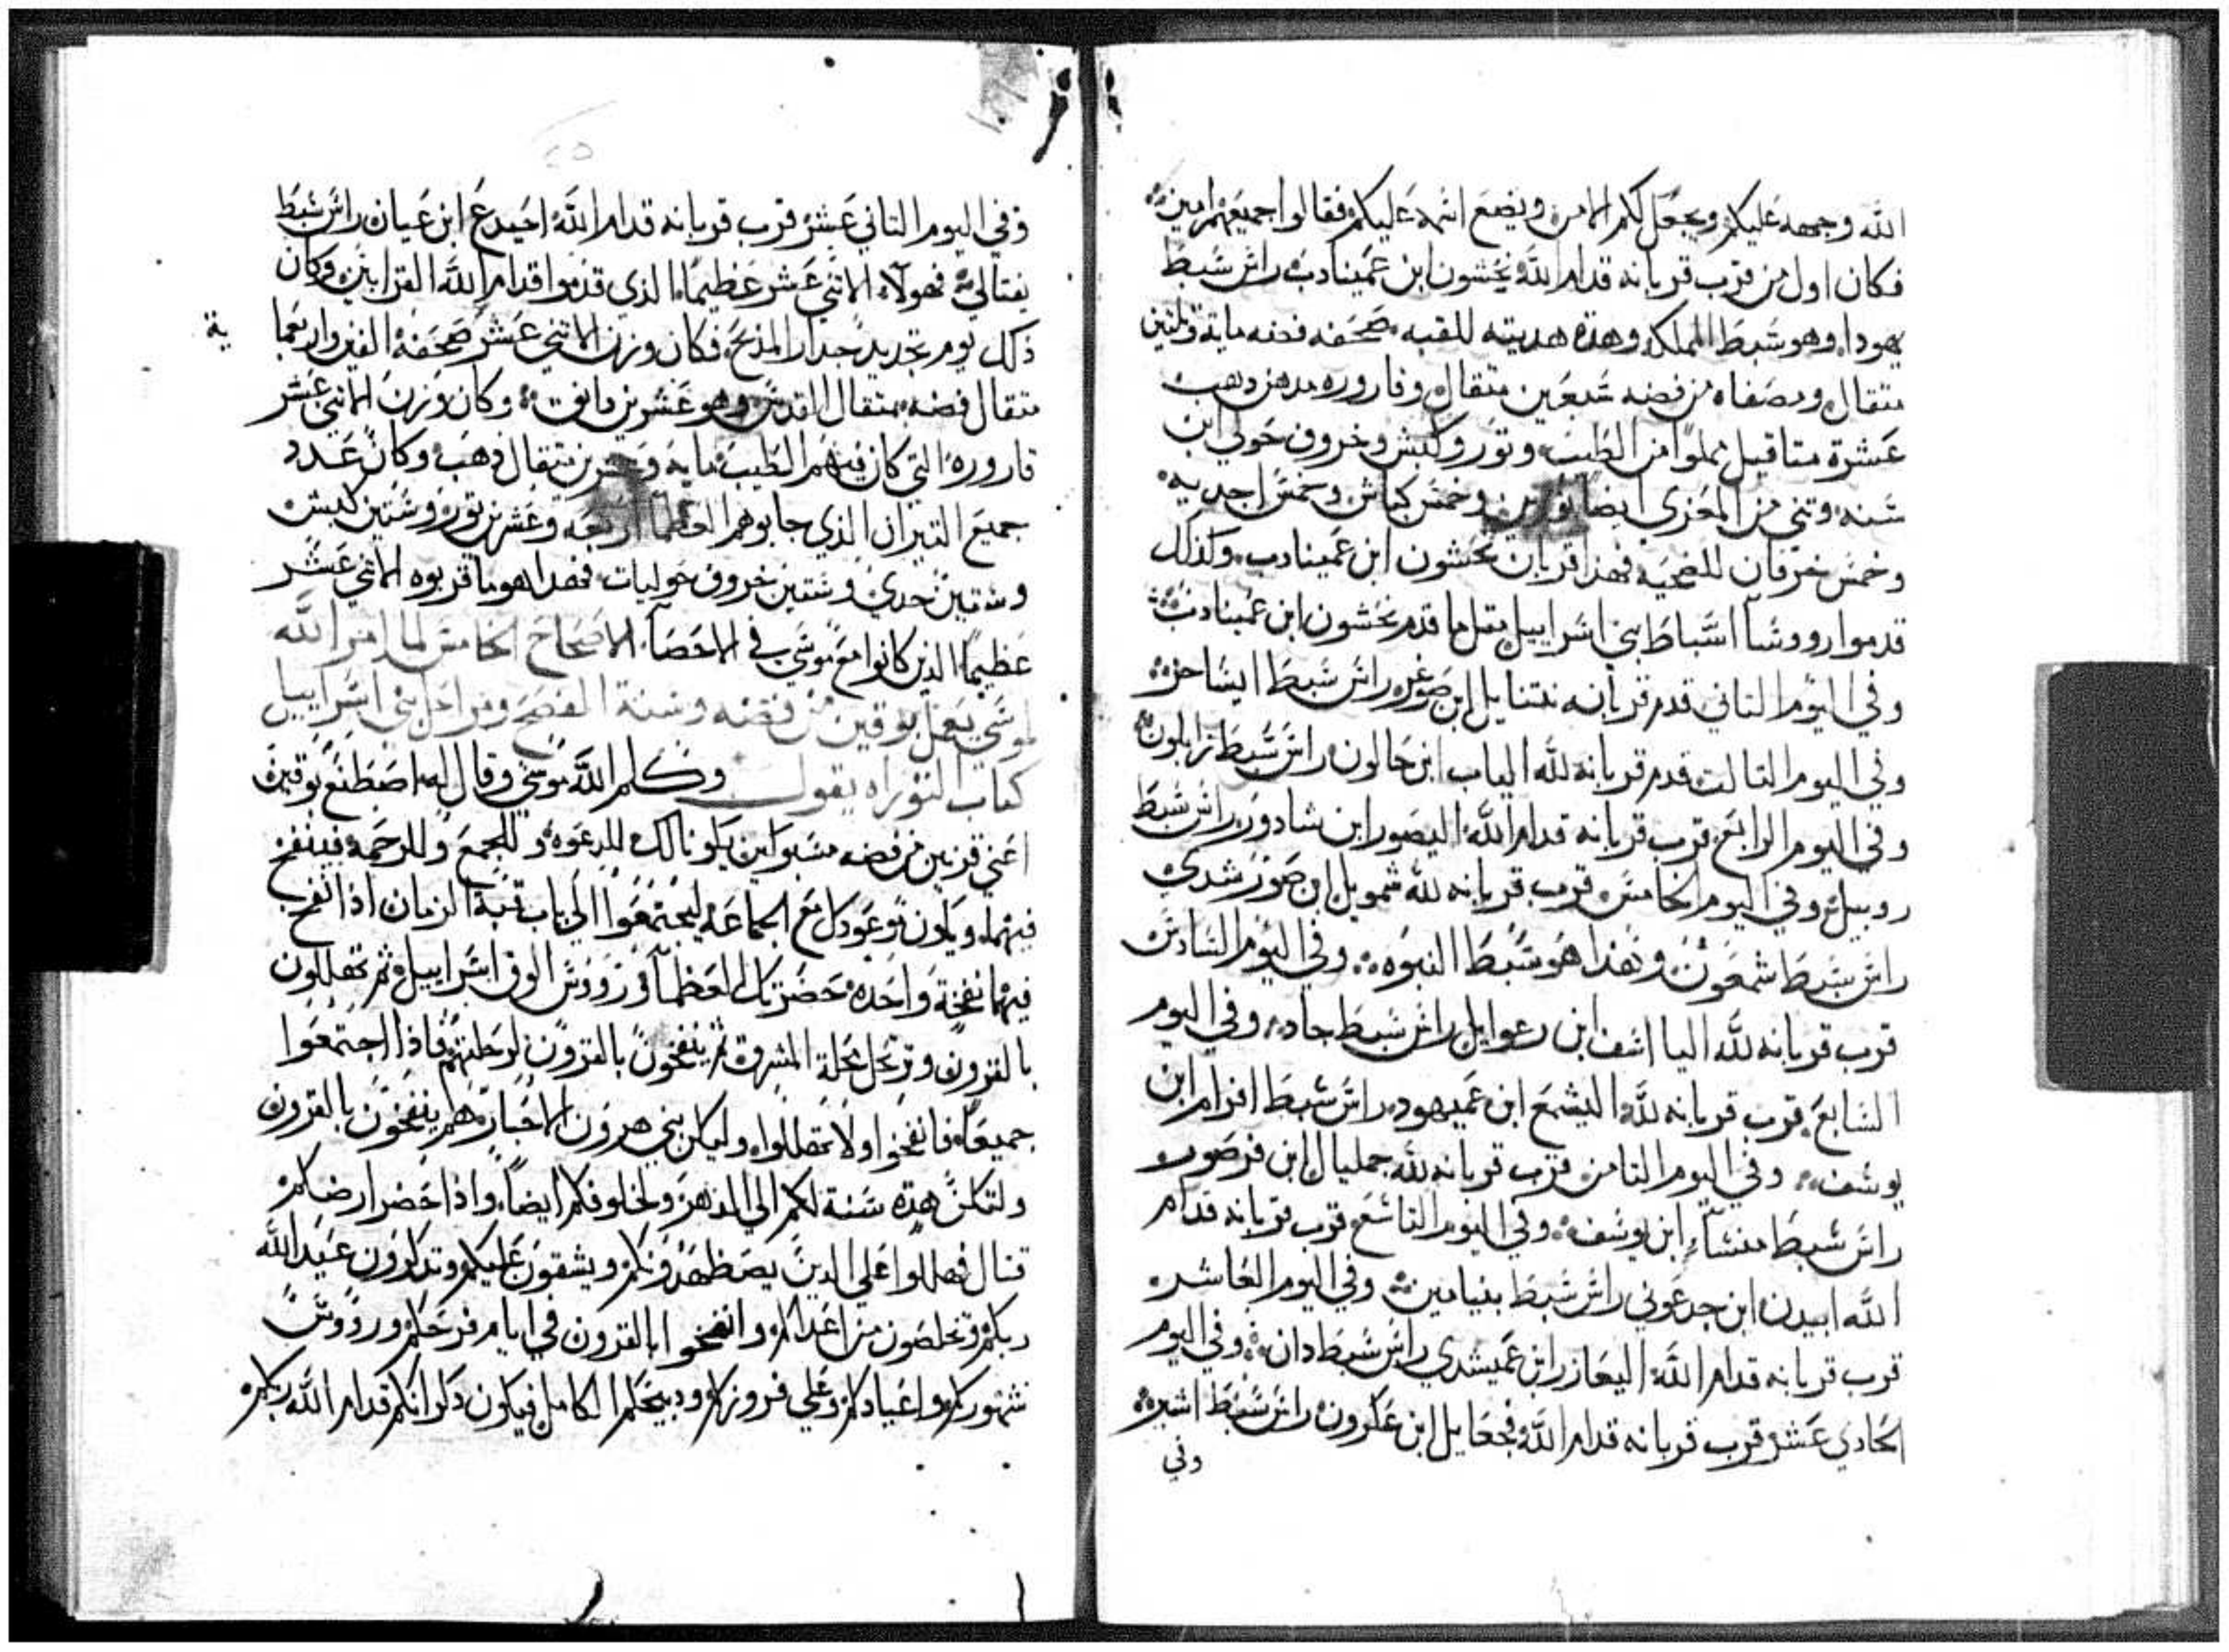 الله وجهه عليكم ويجعل لكم الامن ويضع اسمه عليكم فقالوا جميعهم امين
فكان اول من قرب قربانه قدام الله نحشون ابن عميناداب راس سبط
يهودا وهو سبط المملكه وهذه هديته للقبه صحفه فضه مايه وتلتين
متقال ومصفاه من فضه سبعين متقال وقاروره مدهن دهب
عشرة متاقيل مملوا من الطيب وتور وكبش وخروف حولي ابن
سنه وتني من المعزي ايضا تورين وخمس كباش وخمس اجديه
وخمس خرفان للضحيه فهذا قربان نحشون ابن عمينادب وكذلك
قدموا رووسا اسباط بني اسراييل متل ما قدم نحشون ابن عمينادب
وفي اليوم التاني قدم قربانه نتنايل ابن صوغر راس سبط ايساخر
وفي اليوم التالت قدم قربانه لله الياب ابن حالون راس سبط زابلون
وفي اليوم الرابع قرب قربانه قدام الله اليصور ابن شادور راس سبط
روبيل وفي اليوم الخامس قرب قربانه لله شمويل ابن صورشدي
راس سبط شمعون وهذا هو سبط النبوه وفي اليوم السادس
قرب قربانه لله اليااسف ابن رعوايل راس سبط جاد وفي اليوم
السابع قرب قربانه لله اليشمع ابن عميهود راس سبط افرام ابن
يوسف وفي اليوم التامن قرب قربانه لله جمليال ابن فرصور
راس سبط منسا ابن يوسف وفي اليوم التاسع قرب قربانه قدام
الله ابيدن ابن جدعوني راس سبط بنيامين وفي اليوم العاشر
قرب قربانه قدام الله اليعازر ابن عميشدي راس سبط دان وفي اليوم
الحادي عشر قرب قربانه قدام الله فجعايل ابن عكرون راس سبط اشير
وفي
وفي اليوم التاني عشر قرب قربانه قدام الله احيدع ابن عيان راس سبط
نفتالي فهولاء الاتني عشر عظيما الذي قدموا قدام الله القرابين وكان
ذلك يوم تجديد جدار المذبح فكان وزن الاتني عشر صحفة الفين واربعما
ية
متقال فضه بمتقال القدس وهو عشرين دانق وكان وزن الاتني عشر
قاروره التي كان فيهم الطيب مايه وعشرين متقال دهب وكان عدد
جميع التيران الذي جابوهم العظما اربعه وعشرين تور وستين كبش
وستين جدي وستين خروف حوليات فهداهو ما قربوه الاتني عشر
عظيما الذين كانوا مع موسي في الاحصا الاصحاح الخامس لما امر الله
لموسي بعمل بوقين من فضه وسنة الفصح ومراحل بني اسراييل
كتاب التوراه يقول وكلم الله موسي وقال له اصطنع بوقين
اعني قرنين من فضه مسبوكين يكونا لك للدعوة وللجمع وللرحمه فينفخ
فيهما ويكون توعد كل مع الجماعه ليجتمعوا الي باب قبة الزمان اذا نفخ
فيهما نفخة واحده حضرتك العظما ورووس الوف اسراييل ثم تهللون
بالقرون وترتحل محلة المشرق ثم ينفخون بالقرون لرحلتهم فاذا اجتمعوا
جميعا فانفخوا ولا تهللوا وليكن بني هرون الاحبار هم ينفخون بالقرون
ولتكن هذه سنة لكم الي الدهر ولخلوفكم ايضا واذا حضر ارضكم
قتال فهللوا علي الدين يضطهدونكم ويشقون عليكم وتذكرون عند الله
ربكم وتخلصون من اعداكم وانفخوا بالقرون في ايام فرحكم ورووس
شهوركم واعيادكم وعلي فروزكم ودبيحكم الكامل فيكون ذكرانكم قدام الله ربكم